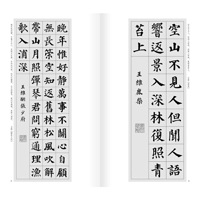 空山不見人但聞人語
響返景入深林復照青
苔上
王維鹿柴
晚年惟好靜萬事不關心自顧
無長策空知返舊林松風吹解
帶山月照彈琴君問窮通理漁
歌入浦深
王維酬張少府